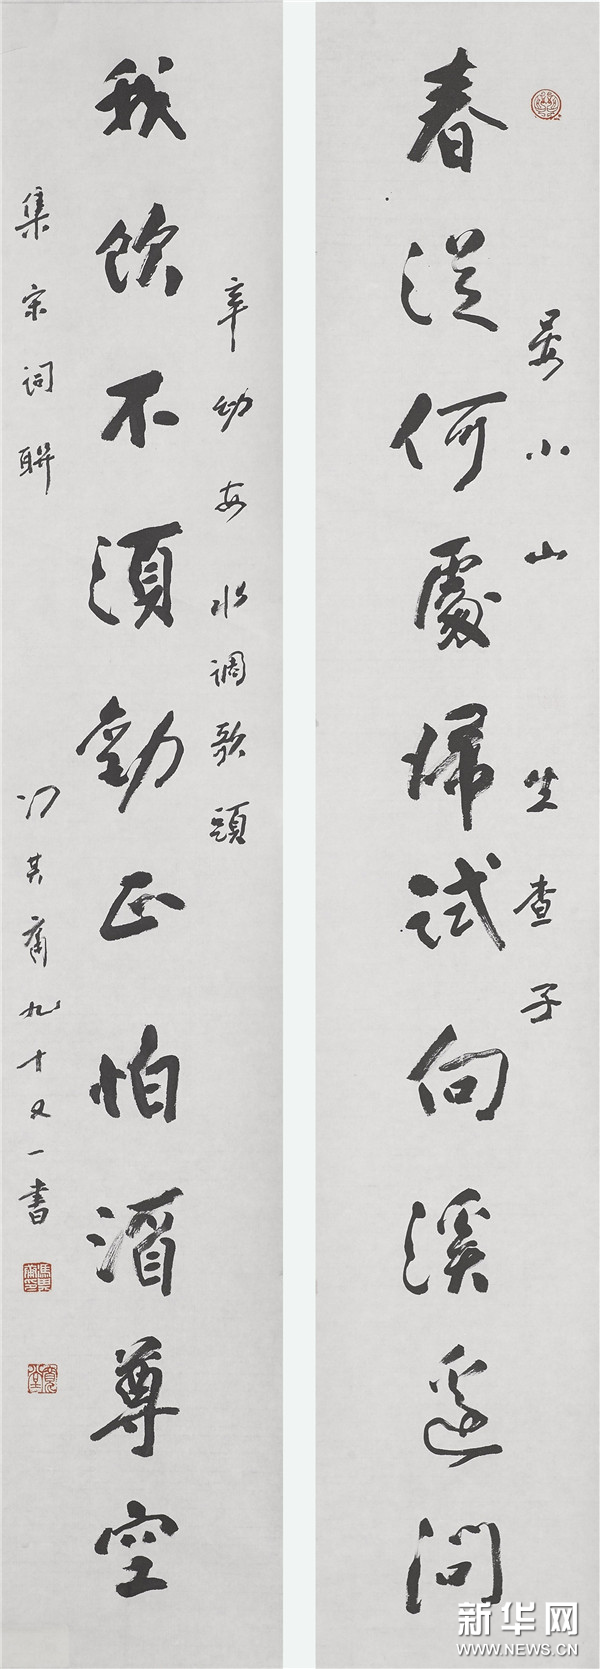 晏小山 生查子
春從何處歸試向溪邊問
辛幼安水調歌頭
我飲不須勸正怕酒尊空
集宋词聯 冯其庸九十又一書
馮其庸印
寬堂
新华网
WWW.NEWS.CN